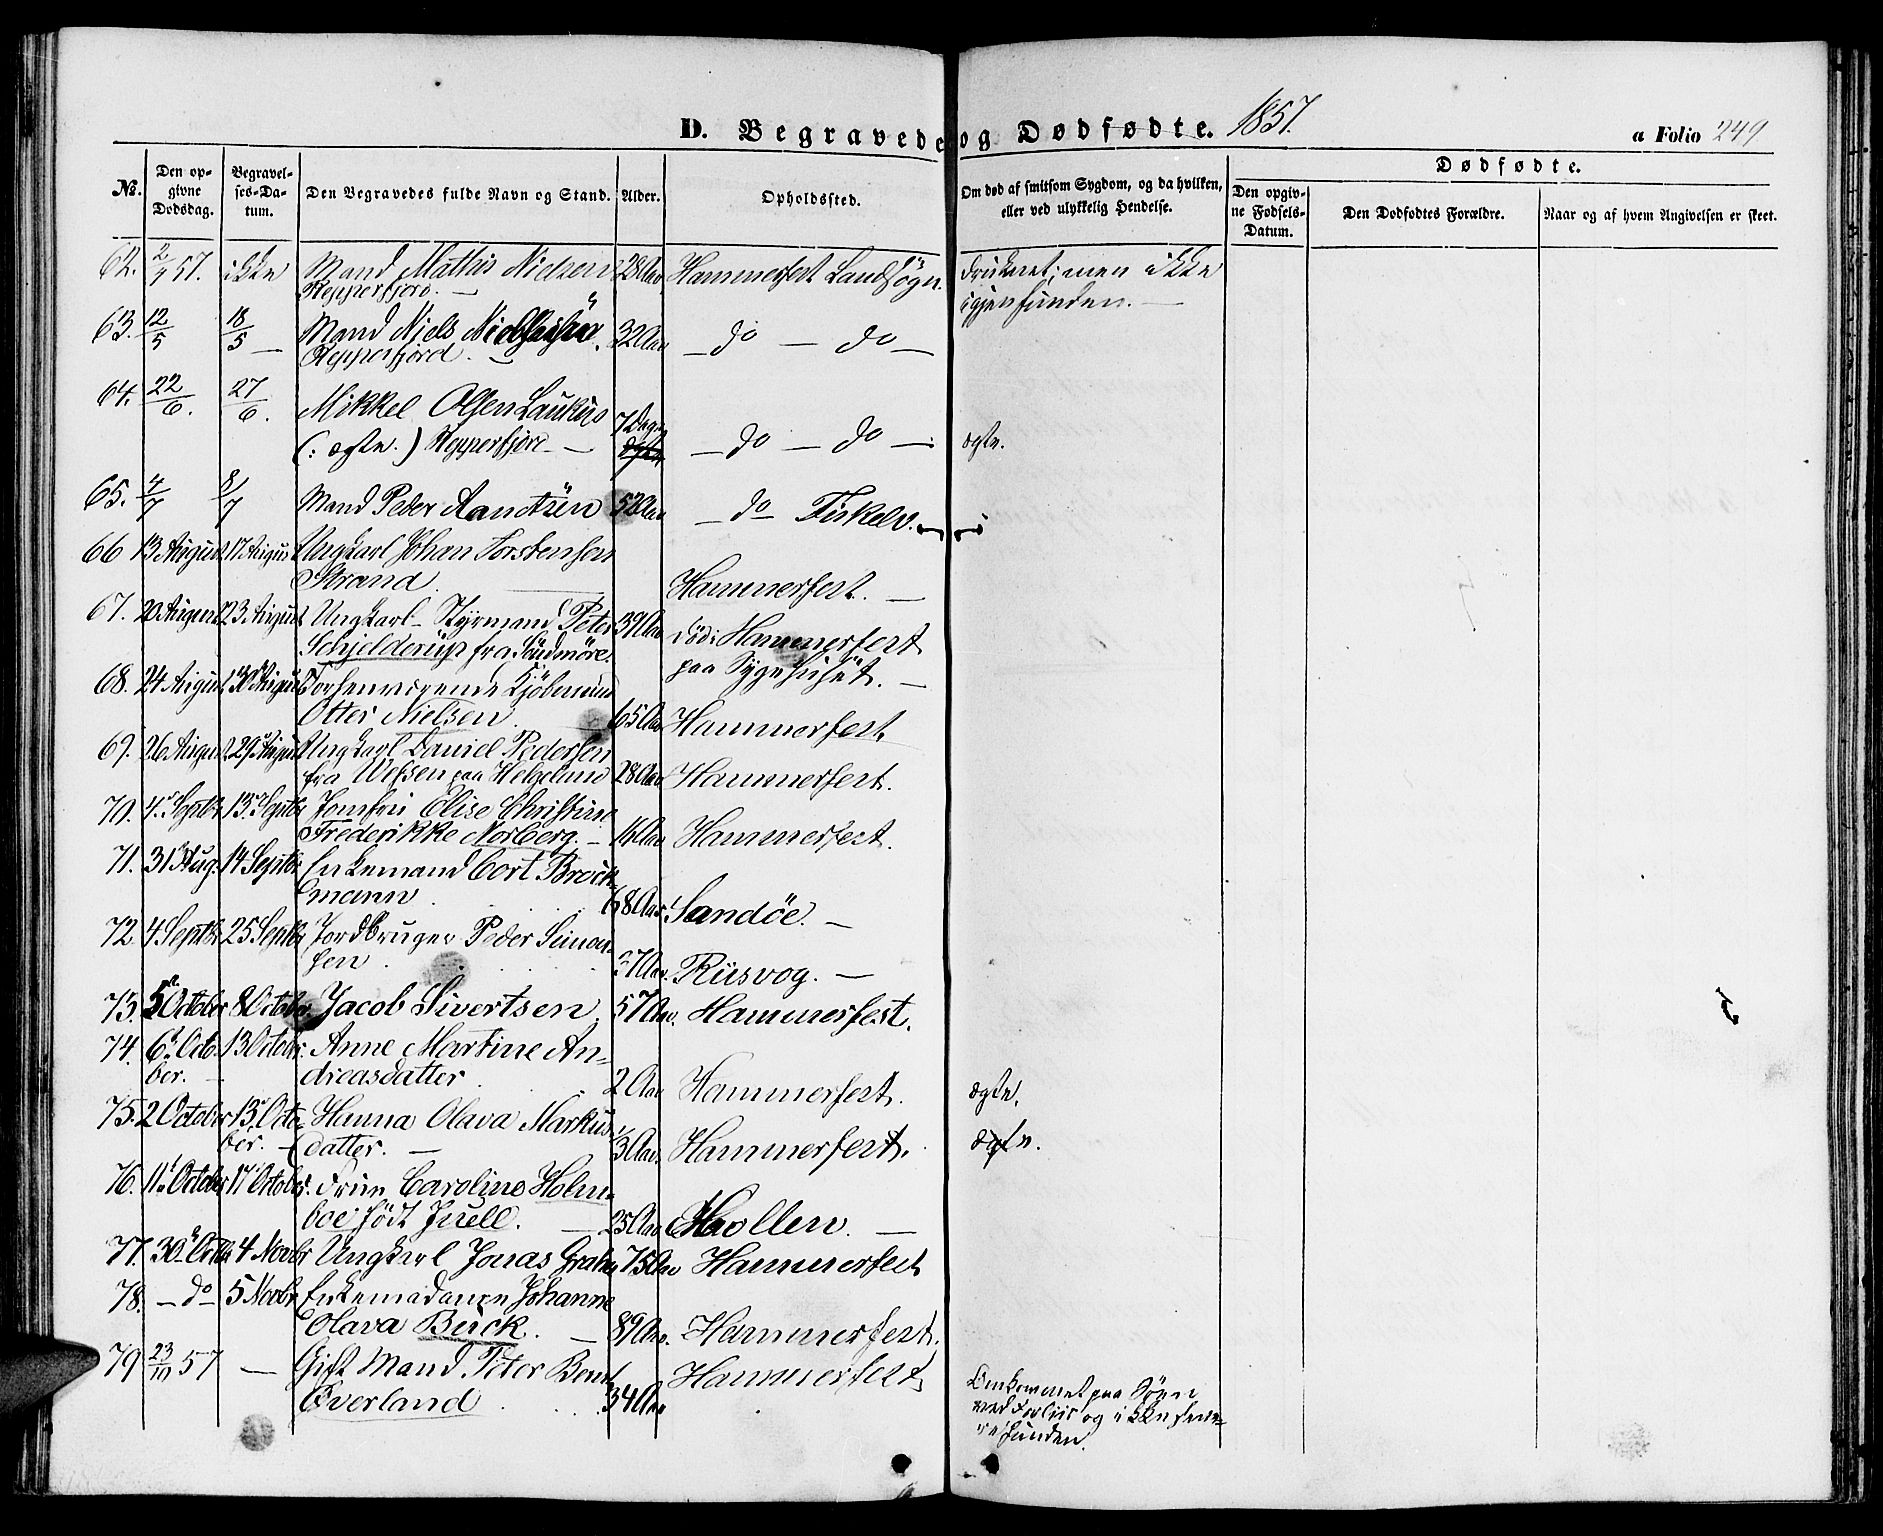 D. Begravede og Dødfødte. 1857.
a Folio 249
No. Den opgivne Dødsdag. Begravelses-Datum. Den Begravedes fulde Navn og Stand. Alder. Opholdssted. Om død af smitsom Sygdom, og da hvilken, eller ved ulykkelig Hendelse. Dødfødte. Den opgivne Fødsels-Datum. Den Dødfødtes Forældre. Naar og af hvem Angivelsen er skeet.
62. 2/7 57. ikke Mand Mathis Nielsen 28 Aar Hammerfest Landsogn. druknet; men ikke
Repperfjord. — igjenfunden. —
63. 12/5 18/5 — Mand Niels 32 Aar — do — do —
Repperfjord. —
64. 22/6. 27/6. Mikkel Olsen Laukus 7 Dage
(: ægte.) Repperfjord — — do — do — ægte.
65. 4/7 8/7 Mand Peder 52 Aar — do — Fiskelv.
66 13 August 17 August Ungkarl Johan Torstensen
Strand. Hammerfest. —
67. 20 August 23 August Ungkarl - Styrmand Peter 39 Aar død i Hammerfest
Schjelderup fra Söndmöre. paa Sygehuset. —
68. 24 August 30 August Forhenværende Kjöbmand
Otter Nielsen. 65 Aar Hammerfest.
69. 26 August 29 August Ungkarl Daniel Pedersen
fra Wefsen paa Helgeland 28 Aar Hammerfest.
70. 4 Septbr 13 Septbr Jomfru Elise Christine
Frederikke Norberg. — 16 Aar Hammerfest.
71. 31 Aug. 14 Septbr Enkemand Cort Brock-
mann. 68 Aar. Sandöe. —
72. 4 Septbr 25 Septbr Jordbruger Peder Simon-
sen. 27 Aar. —
73. 5 October 8 October Jacob Sivertsen. 57 Aar. Hammerfest.
74. 6 Octo- 13 Octobr. Anne Martine An-
ber. — dreasdatter. 2 Aar Hammerfest. ægte.
75. 2 October 13 Octo- Hanna Olava Markus-
ber. — datter. — 3 Aar. Hammerfest. ægte.
76. 11 October 17 October. Frue Caroline Holm-
boe født Juell. — 25 Aar —
77. 30 Octbr 4 Novbr Ungkarl Jonas 75 Aar Hammerfest
78. — do — 5 Novbr Enkemadamen Johanne
Olava Buck. — 89 Aar. Hammerfest.
79 23/10 57 — Gift Mand. Peter Hammerfest Omkommet paa Söen
Överland 34 Aar ved Forliis og ikke sene-
re funden.